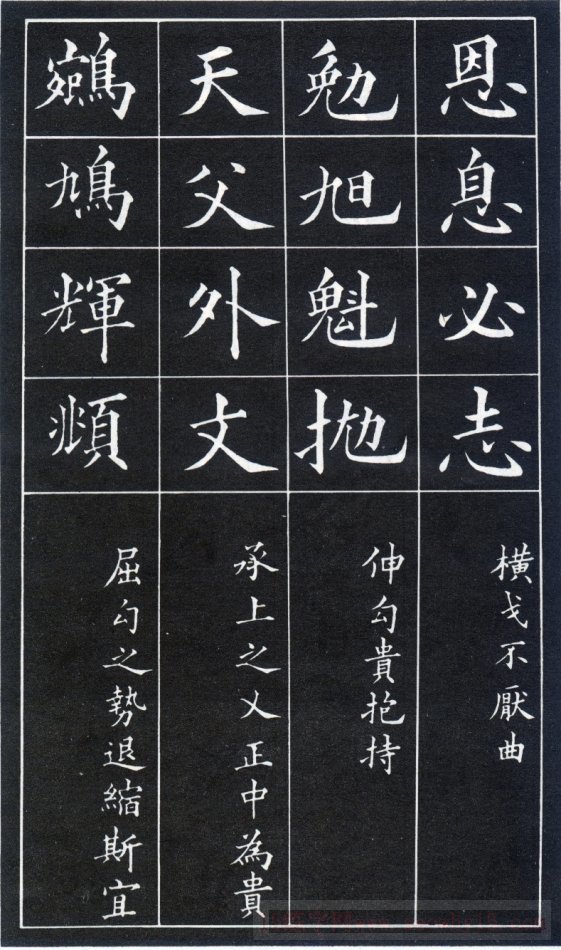 恩息必志
橫戈不厭曲
勉旭魁抛
伸勾貴抱持
天父外文
承上之乂正中為貴
鵷鳩輝頫
屈勾之勢退縮斯宜